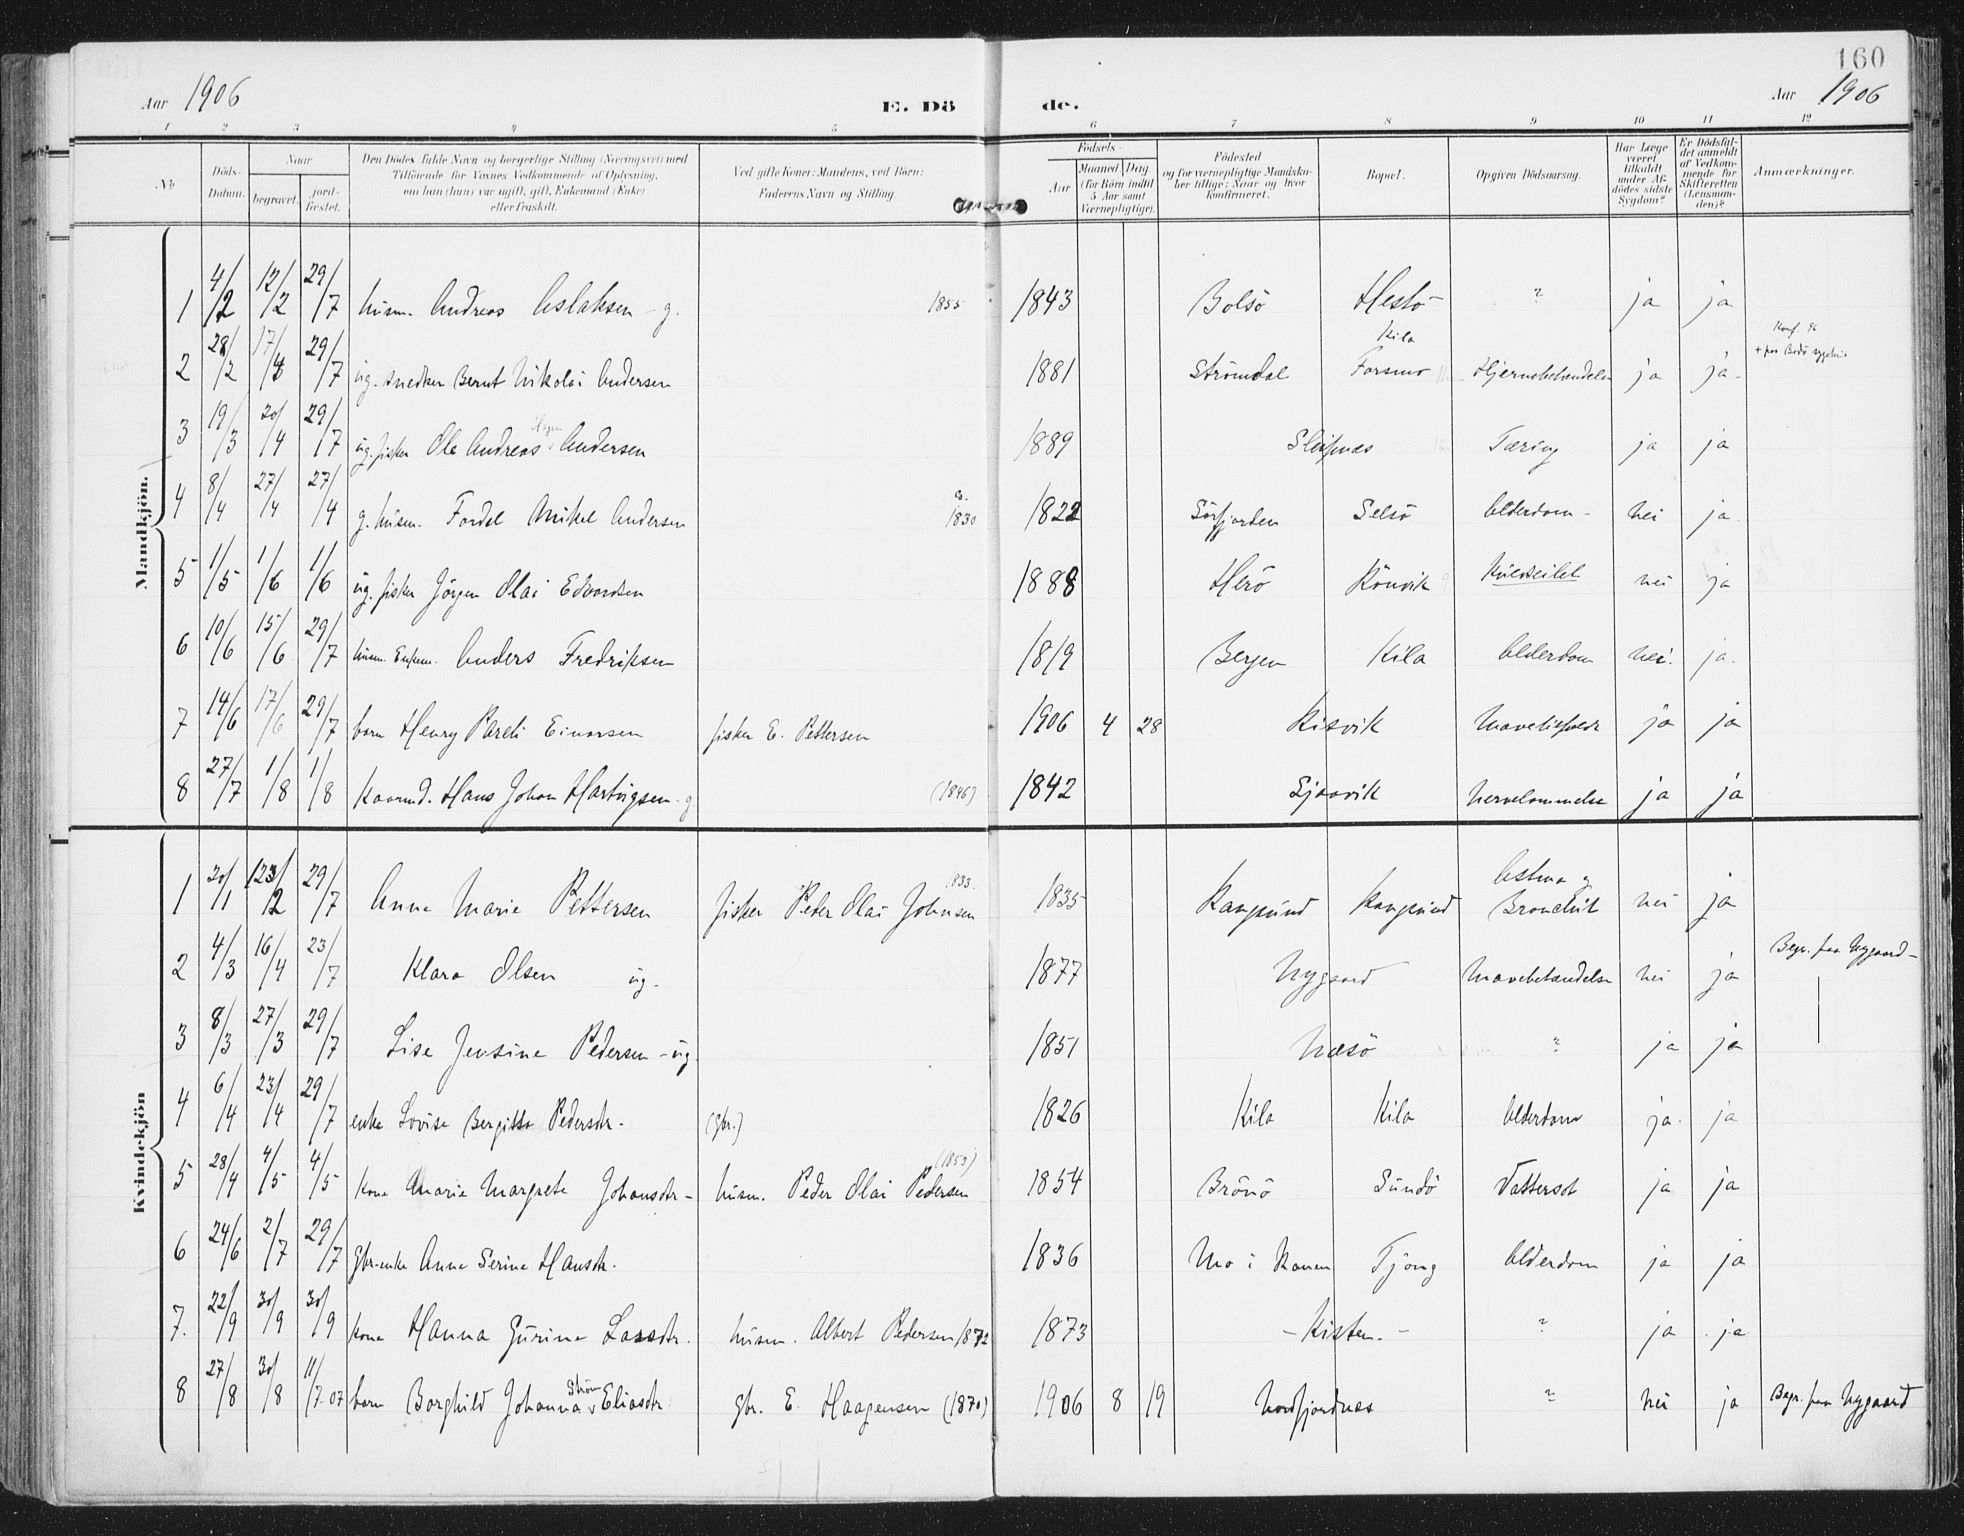 160
Aar 1906 E. Dö de. Aar 1906
1 2 3 4 5 6 7 8 9 10 11 12
No. Döds-Datum. Naar begravet. jord-fæstet. Den Dödes fulde Navn og borgerlige Stilling (Næringsvei) med Tilföiende for Voxnes Vedkommende af Oplysning, om han (hun) var ugift, gift, Enkemand (Enke) eller fraskilt. Ved gifte Koner: Mandens, ved Börn: Faderens Navn og Stilling. Födsels- Aar Maaned Dag (for Börn indtil 5 Aar samt Værnepligtige). Födested og for værnepligtige Mandskaber tillige: Naar og hvor konfirmeret. Bopæl. Opgiven Dödsaarsag. Har Læge været tilkaldt under Afdödes sidste Sygdom? Er Dödsfaldet anmeldt af Vedkommende for Skifteretten (Lensmanden)? Anmærkninger.
Mandkjön.
1 4/2 12/2 29/7 husm. Andreas Aslaksen - g. 1855 1843 Bolsö Hestö " ja ja
2 28/2 17/4 29/7 ug. snedker Bernt Nikolai Andersen 1881 Strömdal Kila Forsmo Hjernebetændelse ja ja
3 19/3 20/4 29/7 ug. fisker Ole Andreas Hagen Andersen 1889 Sleipnæs Tæring ja ja
4 8/4 27/4 27/4 g. husm. Fordel Mikel Andersen 1830 1822 Sörfjorden Selsö Alderdom - nei ja
5 1/5 1/6 1/6 ug. fisker Jörgen Olai Edvardsen 1888 Herö Rönvik Kuldseilet nei ja
6 10/6 15/6 29/7 husm. Enkem. Anders Fredriksen 1819 Bergen Kila Alderdom nei. ja.
7 14/6 17/6 29/7 barn Henry Pareli Einarsen fisker E. Pettersen 1906 4 28 Kisvik ja ja
8 27/7 1/8 1/8 Kaarmd. Hans Johan Hartvigsen - g (1846) 1842 Sjaavik Nervelammelse ja ja
Kvindekjön
1 20/1 23/2 29/7 Anne Marie Pettersen fisker Peder Olai Johnsen 1833. 1835 Rangsund Rangsund Astma og Bronchit nei ja
2 4/3 16/4 23/7 Klara Olsen ug. 1877 Nygaard Mavebetændelse nei ja Begr. paa Nygaard -
3 8/3 27/3 29/7 Lise Jensine Pedersen - ug 1851 Næsö " ja ja
4 6/4 23/4 29/7 enke Lovise Bergitte Pedersdr. (gbr.) 1826 Kila Kila Alderdom ja. ja
5 28/4 4/5 4/5 kone Marie Margrete Johansdr - husm. Peder Olai Pedersen (1853) 1854 Brönö Sundö Vattersot ja ja
6 24/6 2/7 29/7 Gbr-enke Anne Serine Hansdr. 1836 Mo i Ranen Tjong Alderdom ja ja
7. 22/9 30/9 30/9 kone Hanna Gurine Larsdr. husm. Albert Pedersen 1872 1873 - Kisten. - " ja ja
8 27/8 30/8 11/7-07 barn Borghild Johanna Ström Eliasdr. Gbr. E. Haagensen (1870) 1906 8 19 Nordfjordnæs " nei ja Begr. paa Nygaard